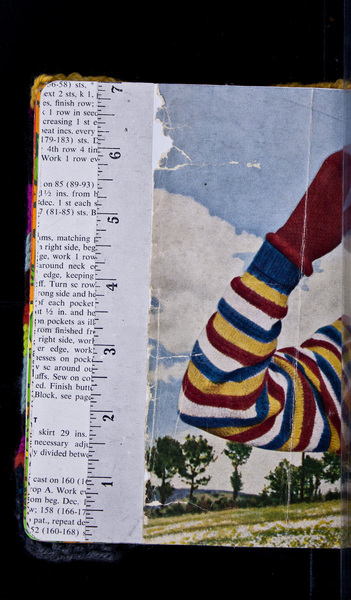 56-58) sts, *
ext 2 sts, k 1,
es, finish row;
k 1 row in seed
creasing 1 st e
eat incs. every
179-183) sts. D
4th row 4 tim
Work 1 row ev
on 85 (89-93)
1½ ins. from b
dec. 1 st each s
7 (81-85) sts. B
ms, matching p
n right side, beg
ge, work 1 row
around neck e
edge, keeping
ff. Turn sc row
rong side and he
of each pocket
t ½ in. and he
on pockets as ill
rom finished fr
right side, work
er edge, work
nesses on pock
v sc around ou
uffs. Sew on co
ed. Finish butt
Block, see page
T
skirt 29 ins.
necessary adju
y divided betw
cast on 160 (16
op A. Work ev
om beg. Dec. 1
w; 158 (166-17
pat., repeat de
52 (160-168) s
7
6
5
4
3
2
1